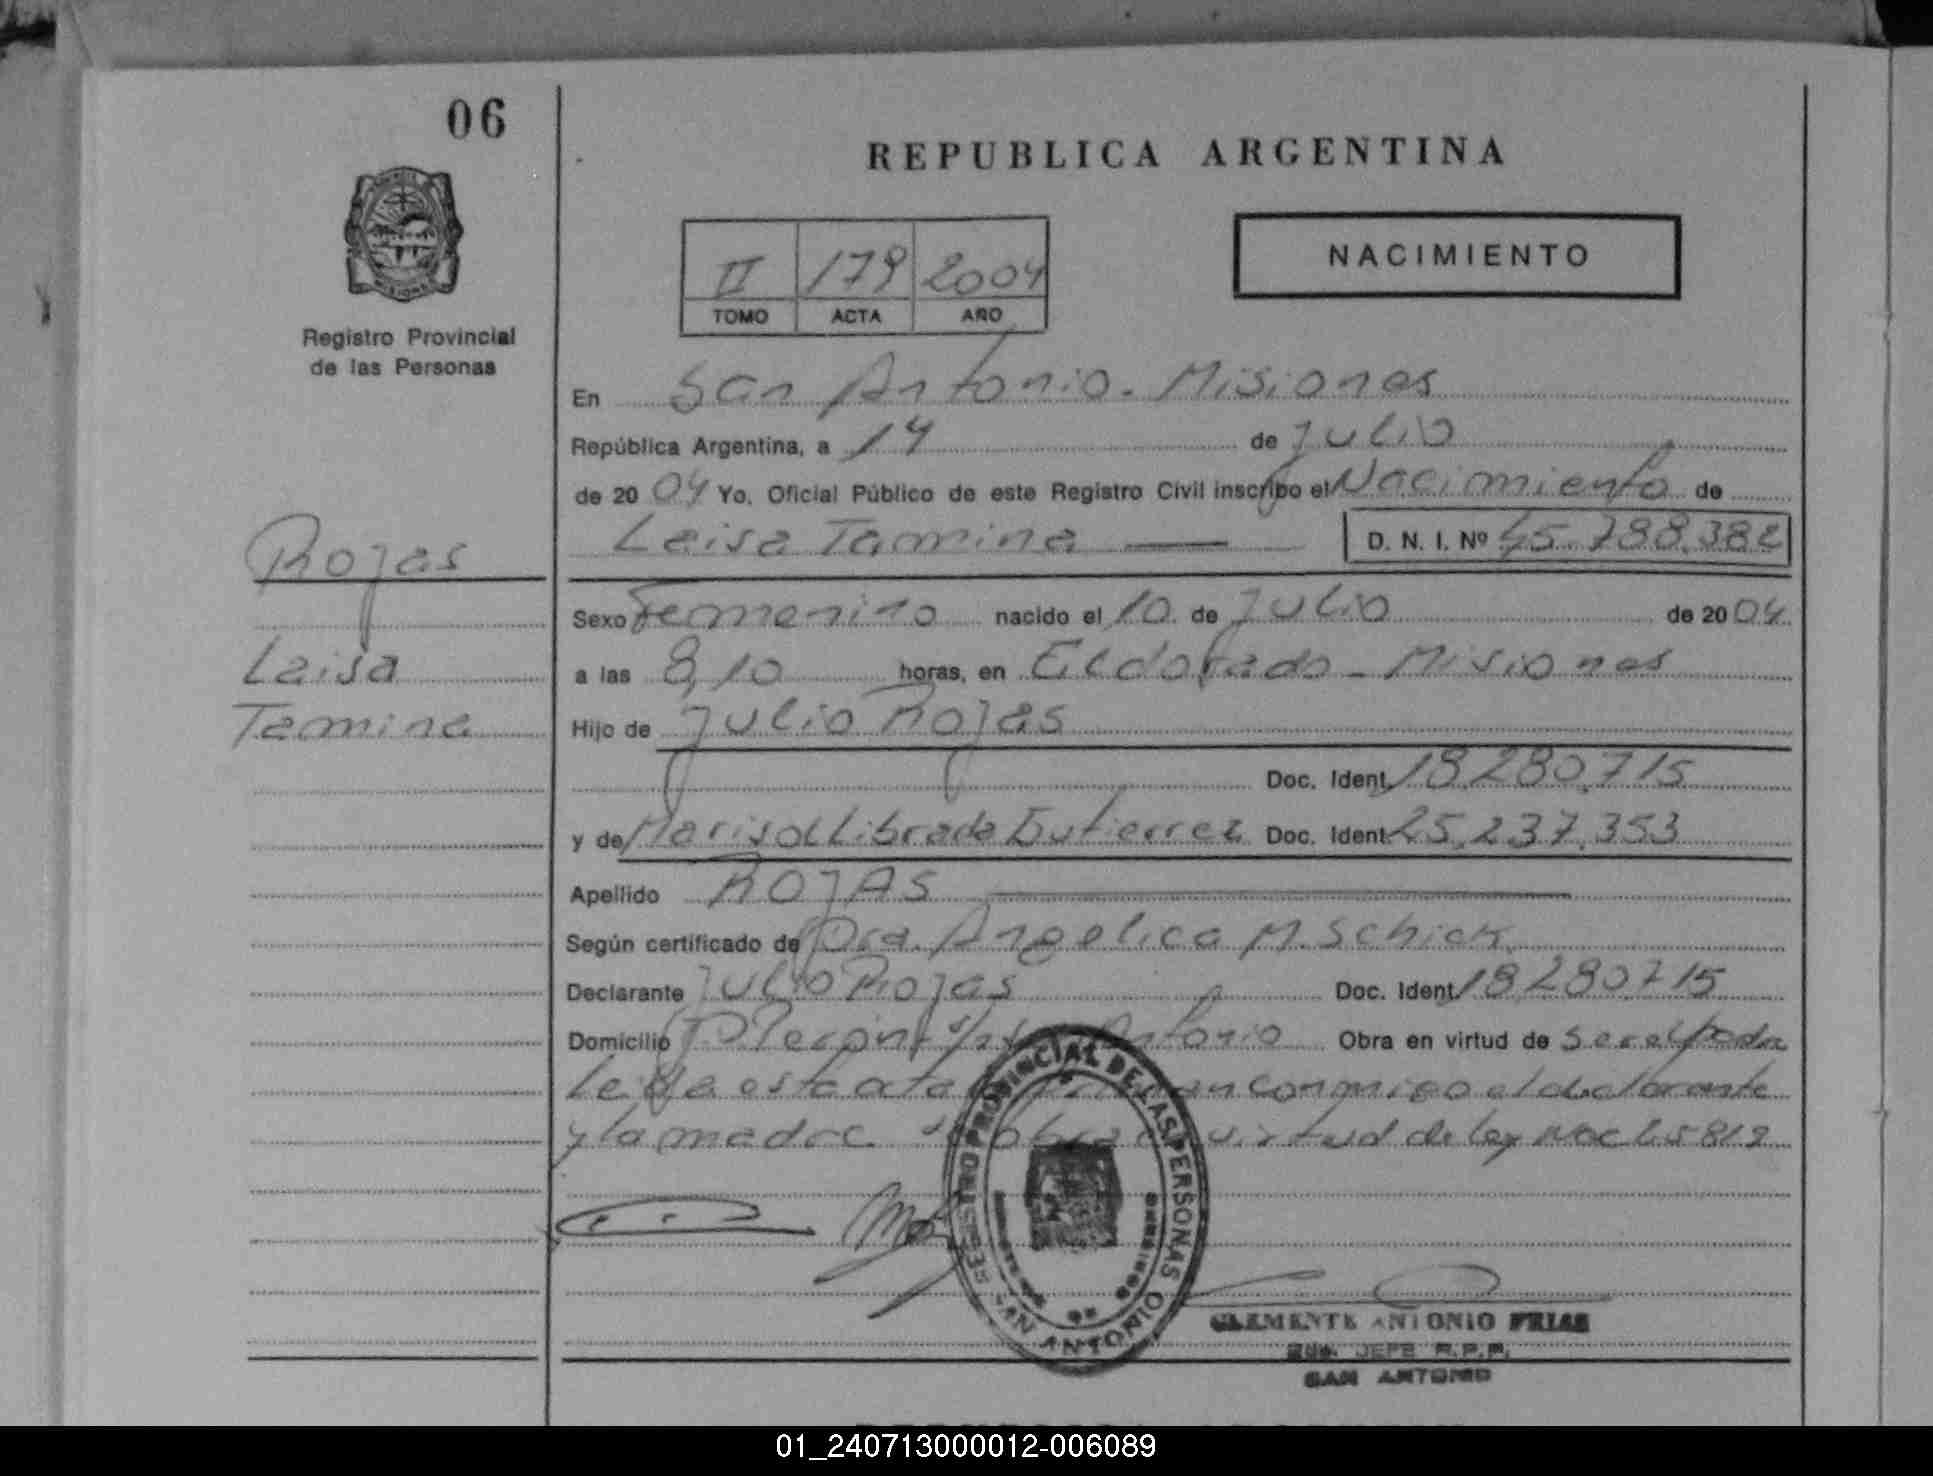 06
REPUBLICA ARGENTINA
Registro Provincial
de las Personas
II 179 2004
TOMO ACTA AÑO
NACIMIENTO
En San Antonio - Misiones
República Argentina, a 14 de Julio
de 2004 Yo, Oficial Público de este Registro Civil inscribo el Nacimiento de
Laisa Tamina D. N. I. Nº 45.788.382
Rojas
Laisa
Tamina
Sexo Femenino nacido el 10 de Julio de 2004
a las 8,10 horas, en Eldorado - Misiones
Hijo de Julio Rojas
Doc. Ident. 18.280.715
y de Marisol Librada Gutierrez Doc. Ident. 25.237.353
Apellido ROJAS
Según certificado de Dra. Angelica M. Schick
Declarante Julio Rojas Doc. Ident. 18280715
Domicilio Antonio Obra en virtud de ser el padre
Leida esta acta conmigo el declarante
y la madre virtud de ley
REGISTRO PROVINCIAL DE LAS PERSONAS
SAN ANTONIO
CLEMENTE ANTONIO FRIAS
JEFE R.P.P.
SAN ANTONIO
01_240713000012-006089